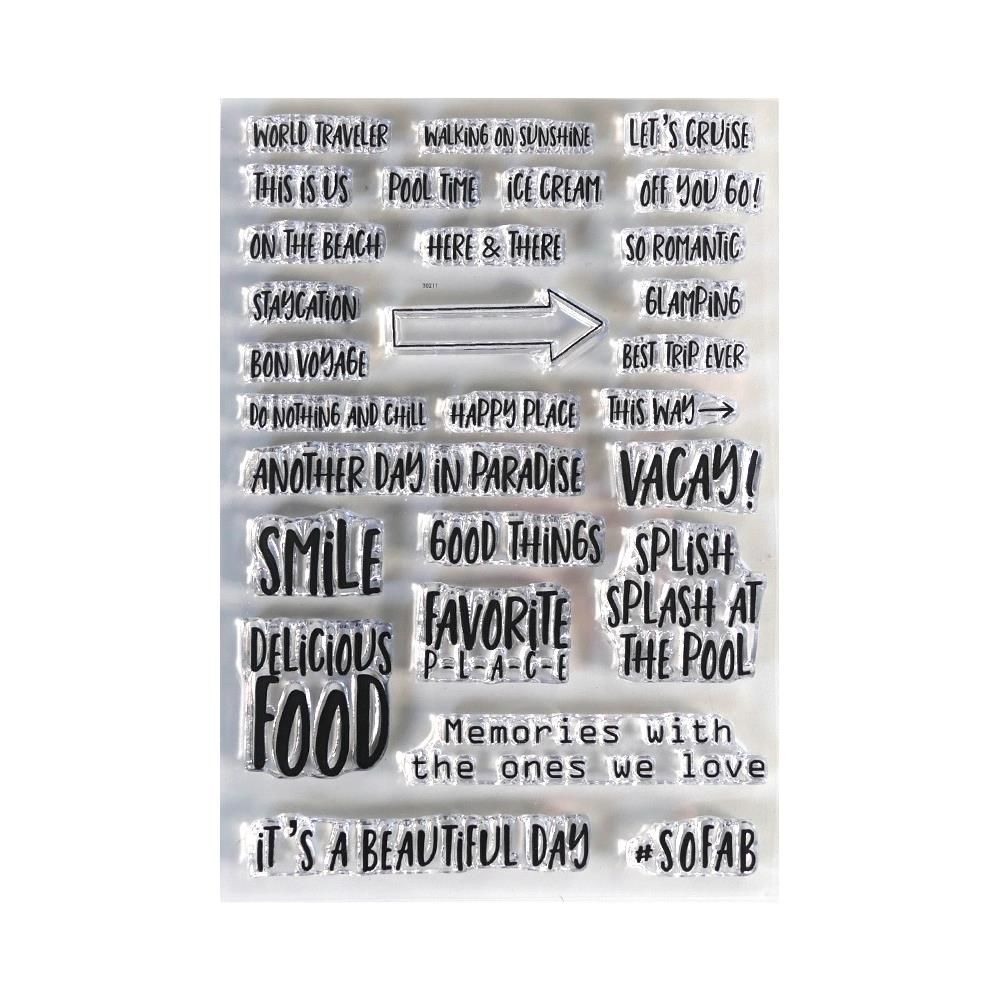 WORLD TRAVELER
WALKiNG ON SUNSHiNE
LET'S CRUiSE
THiS iS US
POOL TiME
iCE CREAM
OFF YOU GO!
ON THE BEACH
HERE & THERE
SO ROMANTiC
STAYCATiON
30211
GLAMPiNG
BON VOYAGE
BEST TRiP EVER
DO NOTHiNG AND CHiLL
HAPPY PLACE
THiS WAY→
ANOTHER DAY iN PARADiSE
VACAY!
SMiLE
GOOD THiNGS
SPLiSH
SPLASH AT
THE POOL
FAVORiTE
P-L-A-C-E
DELiCiOUS
FOOD
Memories with
the ones we love
iT'S A BEAUTiFUL DAY
#SOFAB